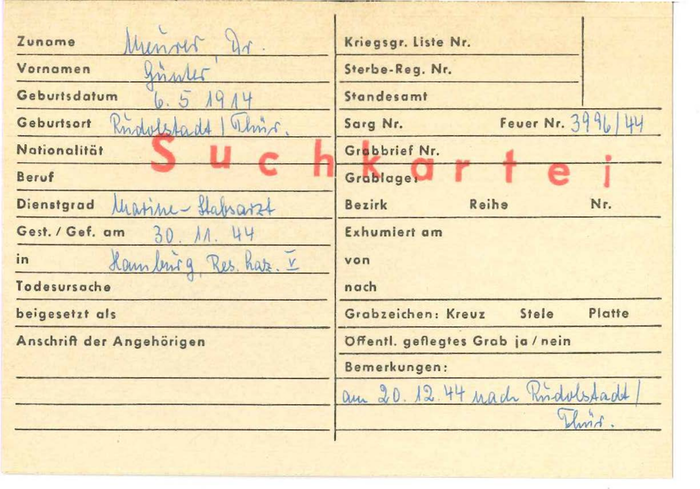 Zuname Meurer, Dr.
Vornamen Günter
Geburtsdatum 6.5 1914
Geburtsort Rudolstadt/Thür.
Nationalität
Beruf
Dienstgrad Marine-Stabsarzt
Gest./Gef. am 30.11.44
in Hamburg, Res. Laz. V
Todesursache
beigesetzt als
Anschrift der Angehörigen
Suchkartei
Kriegsgr. Liste Nr.
Sterbe-Reg. Nr.
Standesamt
Sarg Nr. Feuer Nr. 3996/44
Grabbrief Nr.
Grablage:
Bezirk Reihe Nr.
Exhumiert am
von
nach
Grabzeichen: Kreuz Stele Platte
Öffentl. gepflegtes Grab ja/nein
Bemerkungen:
am 20.12.44 nach Rudolstadt/
Thür.